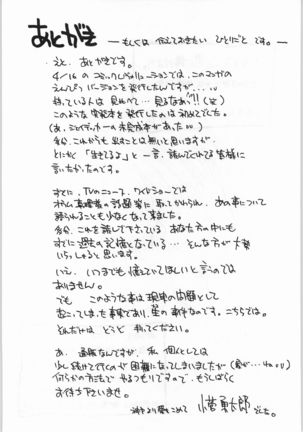 あとがき ― もしくは 伝えておきたい ひとりごと です。―
・えと、あとがきです。
4/16の コミックレヴォリューションでは、このマンガの
えんぴつバージョンを発行したんですが、...
持っている人は 見比べて...見るなぁ!!(笑)
このような 実験本を発行したのは 初めてでした。
多分、これからも 出すことは無いと思いますが、
とにかく「生きてるよ」と一言、読んでくれてる皆様に
言いたかったのです。
すでに、TVのニュース、ワイドショーでは
オウム真理教の話題等に取ってかわられ、あの事について
語られることも少なくなって来ました。
多分、これを読んで下さっている あなた方の中にも
すでに過去の記憶となっている... そんな方が大勢
いらっしゃると思います。
いえ、いつまでも憶えててほしいと言うのでは
ありません。
でも このような事は現実の問題として
起こってしまった事実であり、星の事件なのです。こちらでは。
それだけは どうど 判ってください。
あ、通販なんですが、私個人としては
少し続けて行くのが困難になってしまいましたが
何らかの形でも やるつもりですので、もうしばらく
お待ち下さいませ。
愛をこめて 小菅勇太郎でした。